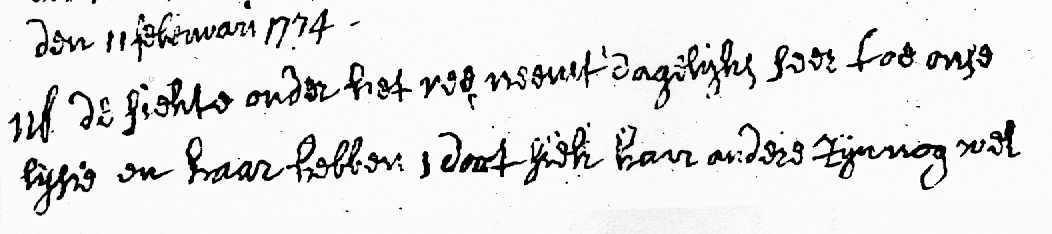 den 11 feberwari 1774 -
NB de siekte onder het vee neemt dagelijks seer toe onse
lijsie en haar hebben 1 doot siek haar andere zijn nog wel